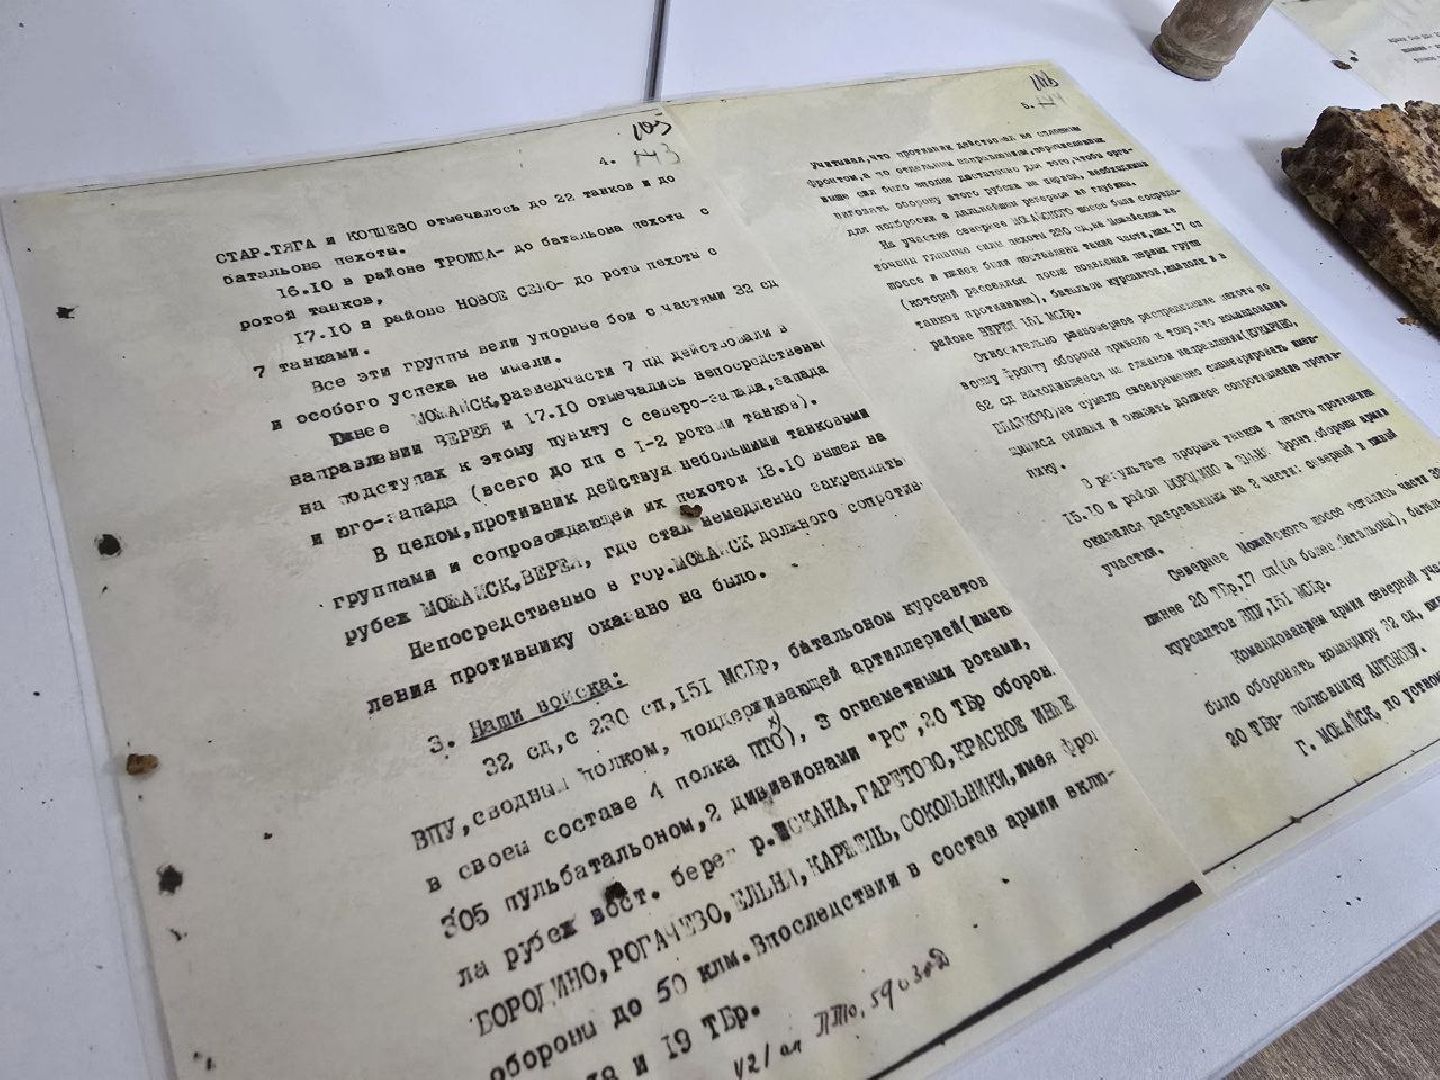 105
4. 143
СТАР.ТЯГА и КОШЕВО отмечалось до 22 танков и до
батальона пехоты.
16.10 в районе ТРОИЦА- до батальона пехоты с
ротой танков,
17.10 в районе НОВОЕ СЕЛО- до роты пехоты с
7 танками.
Все эти группы вели упорные бои с частями 32 сд
и особого успеха не имели.
Южнее МОЖАЙСК,разведчасти 7 пд действовали в
направлении ВЕРЕЯ и 17.10 отмечались непосредственно
на подступах к этому пункту с северо-запада,запада
и юго-запада (всего до пп с 1-2 ротами танков).
В целом,противник действуя небольшими танковыми
группами и сопровождающей их пехотой 18.10 вышел на
рубеж МОЖАЙСК,ВЕРЕЯ, где стал немедленно закреплять
Непосредственно в гор.МОЖАЙСК должного сопротив-
ления противнику оказано не было.
3. Наши войска:
32 сд,с 230 сп,151 МСБр, батальоном курсантов
ВПУ,сводным полком, поддерживающей артиллерией(имея
в своем составе 4 полка ПТО), 3 огнеметными ротами,
305 пульбатальоном,2 дивизионами "РС",20 ТБр оборон.
ла рубеж вост. берег р.ИСКАНА,ГАРЕТОВО,КРАСНОЕ ИНЬЕ
БОРОДИНО,РОГАЧЕВО,ЕЛЬНЯ,КАРЖЕНЬ,СОКОЛЬНИКИ,имея фро
обороны до 50 клм.Впоследствии в состав армии вклю-
18 и 19 ТБр.
5.
Учитывая,что противник действовал не сплошным
фронтом,а по отдельным направлениям,перечисленных
выше сил было вполне достаточно для того,чтобы орга-
низовать оборону этого рубежа на период, необходимый
для подброски в дальнейшем резервов из глубины.
На участке севернее МОЖАЙСКОГО шоссе были сосредо-
точены главные силы пехоты 230 сд,на Можайском же
шоссе и южнее были поставлены такие части,как 17 сп
(который рассеялся после появления первых групп
танков противника), батальон курсантов,
районе ВЕРЕЯ 151 МСБр.
Относительно равномерное распределение пехоты по
всему фронту обороны привело к тому,что командование
62 сд находившееся на главном направлении(КУДАРИНО,
ГЛАЗКОВО)не сумело своевременно сманеврировать имею-
щимися силами и оказать должное сопротивление против-
нику.
В результате прорыва танков и пехоты противника
15.10 в район БОРОДИНО и фронт обороны армии
оказался разрезанным на 2 части: северный и южный
участки.
Севернее Можайского шоссе остались части 32
южнее 20 ТБр,17 сп(не более батальона), батальон
курсантов ВПУ,151 МСБр.
Командованием армии северный участок
было оборонять командиру 32 сд,
20 ТБр- полковнику АНТОНОВУ.
Г. МОЖАЙСК, по